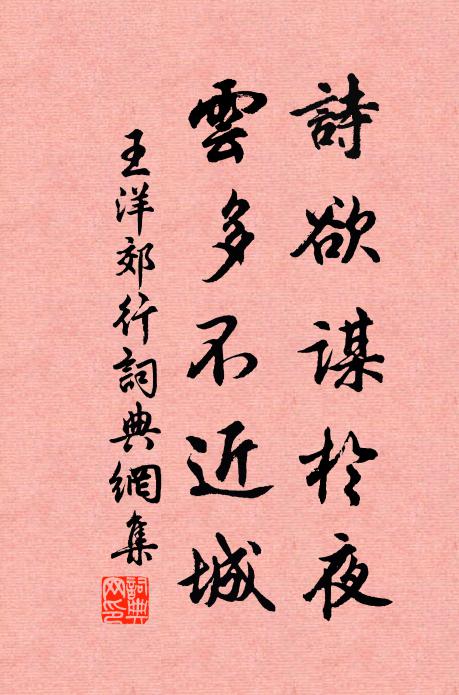 詩欲謀於夜
雲多不近城
王洋郊行詞典網集
詞典
网印